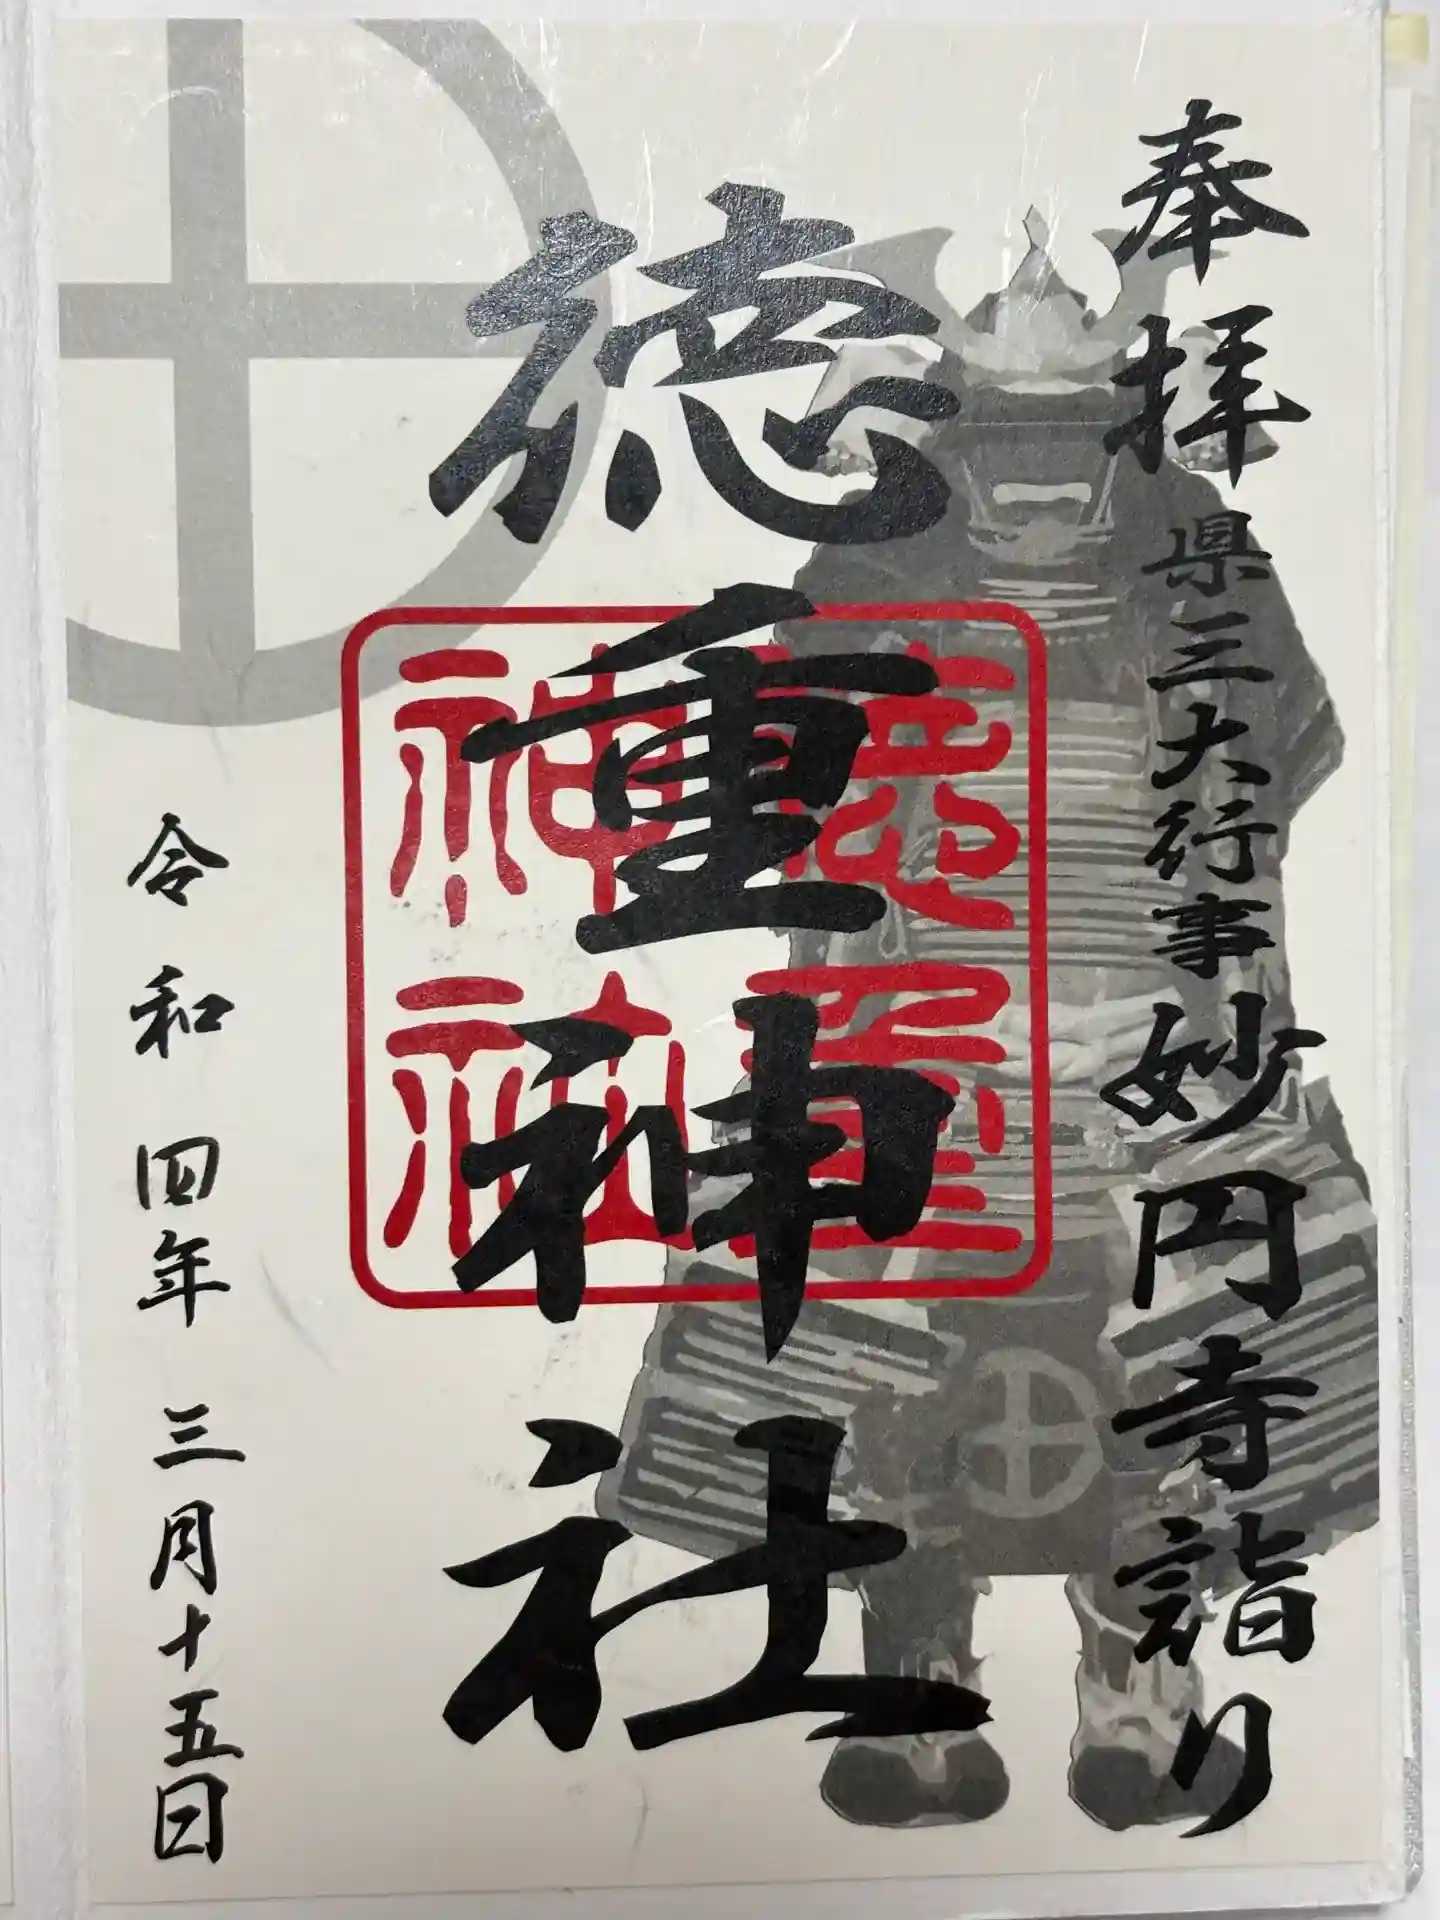 奉拝 県三大行事 妙円寺詣り
徳重神社
徳重
神社
令和四年 三月十五日